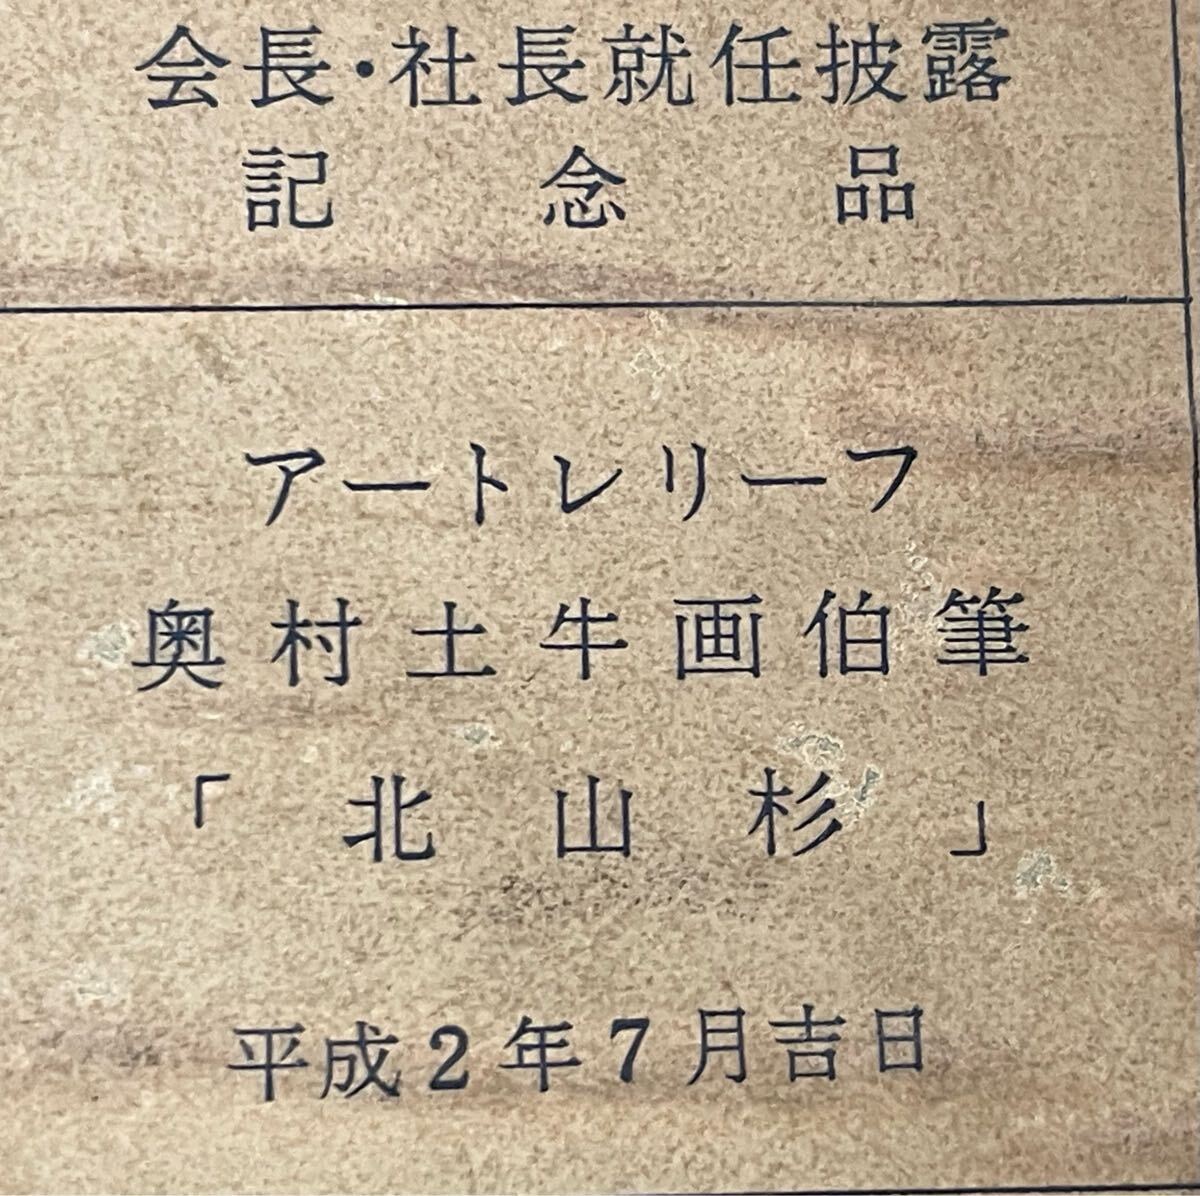 会長・社長就任披露
記念品
アートレリーフ
奥村土牛画伯筆
「北山杉」
平成2年7月吉日